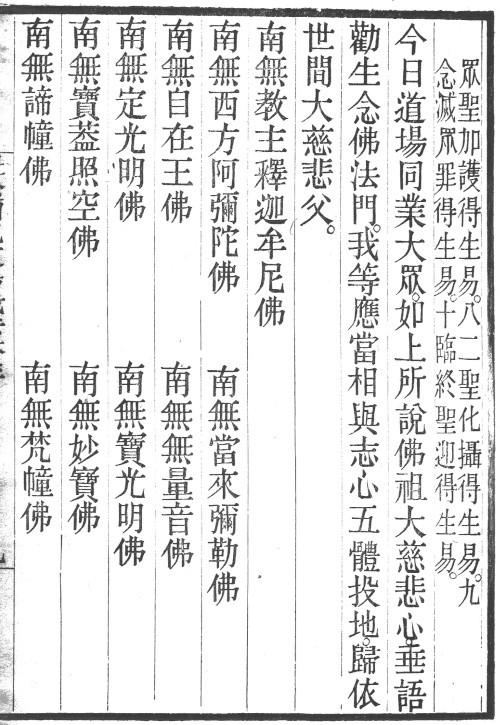 眾聖加護得生易。八二聖化攝得生易。九
念滅眾罪得生易。十臨終聖迎得生易。
今日道場同業大眾。如上所說佛祖大慈悲心。垂語
勸生念佛法門。我等應當相與志心五體投地。歸依
世間大慈悲父。
南無教主釋迦牟尼佛
南無西方阿彌陀佛 南無當來彌勒佛
南無自在王佛 南無無量音佛
南無定光明佛 南無寶光明佛
南無寶葢照空佛 南無妙寶佛
南無諦幢佛 南無梵幢佛